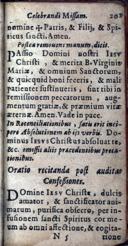 Celebrandi Missam. 201
nomine ✠ Patris, & Filij, & Spi
ritus sancti. Amen.
Postea remouens manum, dicit.
Passio Domini nostri Iesv
Christi, & merita B. Virginis
Mariæ, & omnium Sanctorum,
& quicquid boni feceris, & mali
patienter sustinueris, sint tibi in
remissionem peccatorum, aug-
mentum gratiæ, & præmium vitæ
æternæ. Amen. Vade in pace.
In Reconciliationibus, satis erit inci-
pere Absolutionem ab iis verbis. Do-
minus Iesvs Christus absoluat te,
&c. omissis aliis præcedentibus preca-
tionibus.
Oratio recitanda post auditas
Confessiones.
Domine Iesv Christe, dulcis
amator, & sanctificator ani-
marum, purifica obsecro, per in-
fusionem sancti Spiritus cor me-
um ab omni affectione, & cogita-
N 5 tione